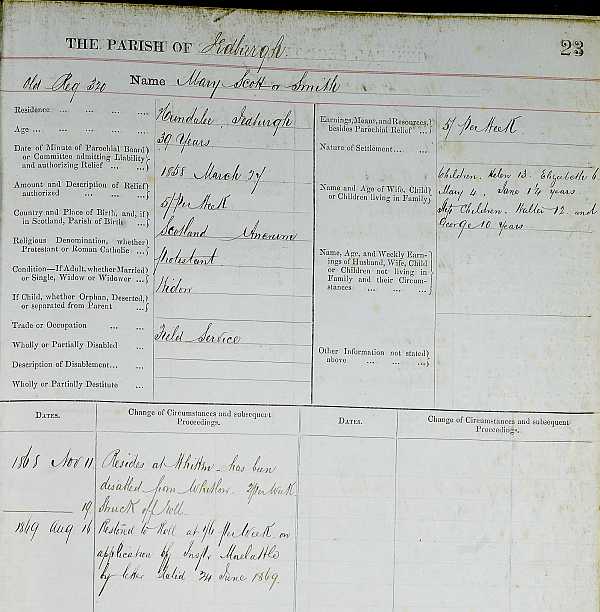 THE PARISH OF Jedburgh. 23
Old Reg 320 Name Mary Scott or Smith
Residence ... ... ... ... Jedburgh
Age ... ... ... ... ... 39 Years
Date of Minute of Parochial Board
or Committee admitting Liability
and authorizing Relief ... ... 1868 March 27
Amount and Description of Relief
authorized ... ... ... 5/ Per Week
Country and Place of Birth, and, if
in Scotland, Parish of Birth ... Scotland Ancrum
Religious Denomination, whether
Protestant or Roman Catholic ... Protestant
Condition—If Adult, whether Married
or Single, Widow or Widower ... Widow
If Child, whether Orphan, Deserted,
or separated from Parent ...
Trade or Occupation ... ... Field Service
Wholly or Partially Disabled ...
Description of Disablement... ...
Wholly or Partially Destitute ...
Earnings, Means, and Resources,
besides Parochial Relief ... 5/ Per Week
Nature of Settlement... ...
Name and Age of Wife, Child
or Children living in Family
Children. Helen 13. Elizabeth 6
Mary 4. Jane 1 1/4 years
Step Children. Walter 12 and
George 10 Years
Name, Age, and Weekly Earn-
ings of Husband, Wife, Child
or Children not living in
Family and their Circum-
stances ... ... ...
Other Information not stated
above ... ... ...
DATES. Change of Circumstances and subsequent
Proceedings.
DATES. Change of Circumstances and subsequent
Proceedings.
1868 Nov 11 Resides at has been
from 2/ Per Week
19 Struck off Roll
1869 Aug 16 Restored to Roll at 1/6 Per Week on
application of Inspr
by letter dated 24 June 1869.